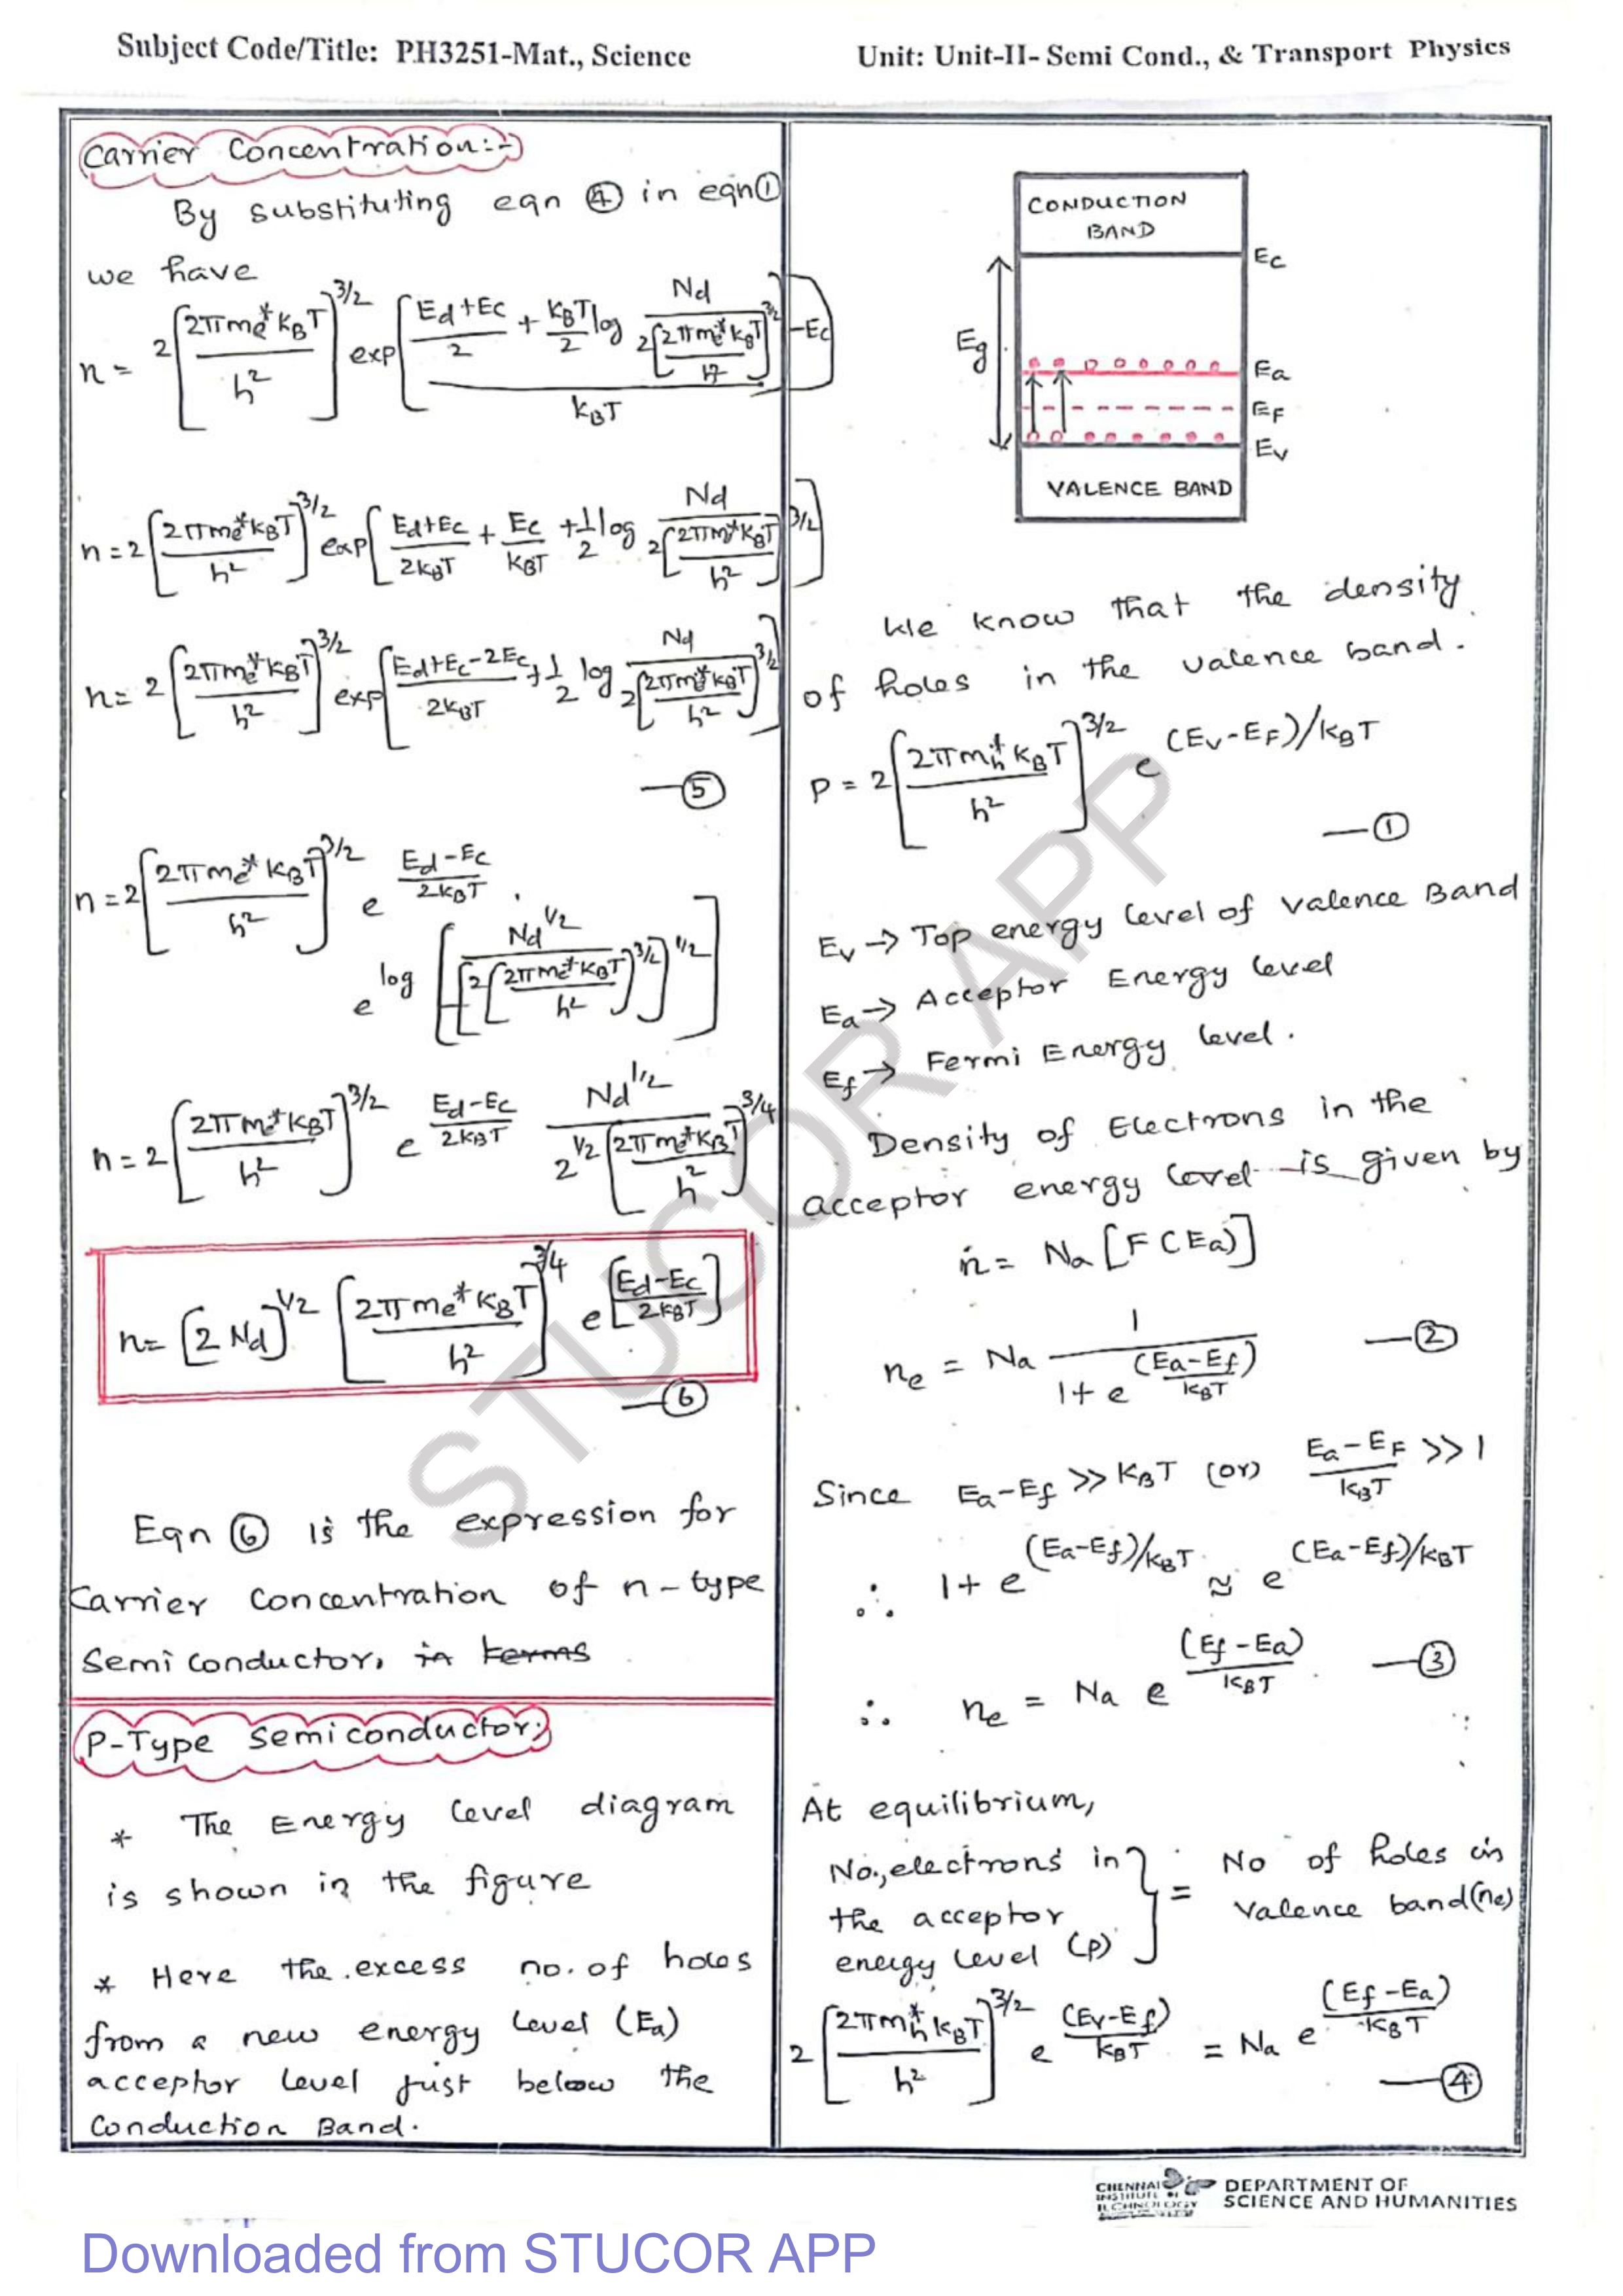 Subject Code/Title: PH3251-Mat., Science
Unit: Unit-II- Semi Cond., & Transport Physics
Carrier Concentration:-
By substituting eqn ④ in eqn①
we have
n = 2[2πme*kBT/h²]^3/2 exp[(Ed+Ec/2 + kBT/2 log Nd/2[2πme*kBT/h²]^3/2 -Ec)/kBT]
n = 2[2πme*kBT/h²]^3/2 exp[Ed+Ec/2kBT + Ec/kBT + 1/2 log Nd/2[2πme*kBT/h²]^3/2]
n = 2[2πme*kBT/h²]^3/2 exp[Ed+Ec-2Ec/2kBT + 1/2 log Nd/2[2πme*kBT/h²]^3/2]
—⑤
n = 2[2πme*kBT/h²]^3/2 e^Ed-Ec/2kBT .
e^log [Nd^1/2/[2[2πme*kBT/h²]^3/2]^1/2]
n = 2[2πme*kBT/h²]^3/2 e^Ed-Ec/2kBT Nd^1/2/2^1/2[2πme*kBT/h²]^3/4
n = [2 Nd]^1/2 [2πme*kBT/h²]^3/4 e^[Ed-Ec/2kBT]
—⑥
Eqn ⑥ is the expression for
Carrier Concentration of n-type
Semi conductor, in terms
P-Type Semiconductor:
* The Energy level diagram
is shown in the figure
* Here the excess no. of holes
from a new energy level (Ea)
acceptor level just below the
Conduction Band.
CONDUCTION
BAND
Ec
Eg
Ea
EF
Ev
VALENCE BAND
We know that the density
of holes in the valence band.
P = 2[2πmh*kBT/h²]^3/2 e^(Ev-EF)/kBT
—①
Ev → Top energy level of valence Band
Ea → Acceptor Energy level
Ef → Fermi Energy level.
Density of Electrons in the
acceptor energy level is given by
n = Na [F(Ea)]
ne = Na 1/1+e^(Ea-Ef)/kBT —②
Since Ea-Ef >> KBT (or) Ea-EF/kBT >> 1
∴ 1+e^(Ea-Ef)/kBT ≈ e^(Ea-Ef)/kBT
∴ ne = Na e^(Ef-Ea)/kBT —③
At equilibrium,
No., electrons in
the acceptor
energy level (p) } = No of holes in
valence band(ne)
2[2πmh*kBT/h²]^3/2 e^(Ev-Ef)/kBT = Na e^(Ef-Ea)/kBT
—④
STUCOR APP
CHENNAI
INSTITUTE OF
TECHNOLOGY
DEPARTMENT OF
SCIENCE AND HUMANITIES
Downloaded from STUCOR APP